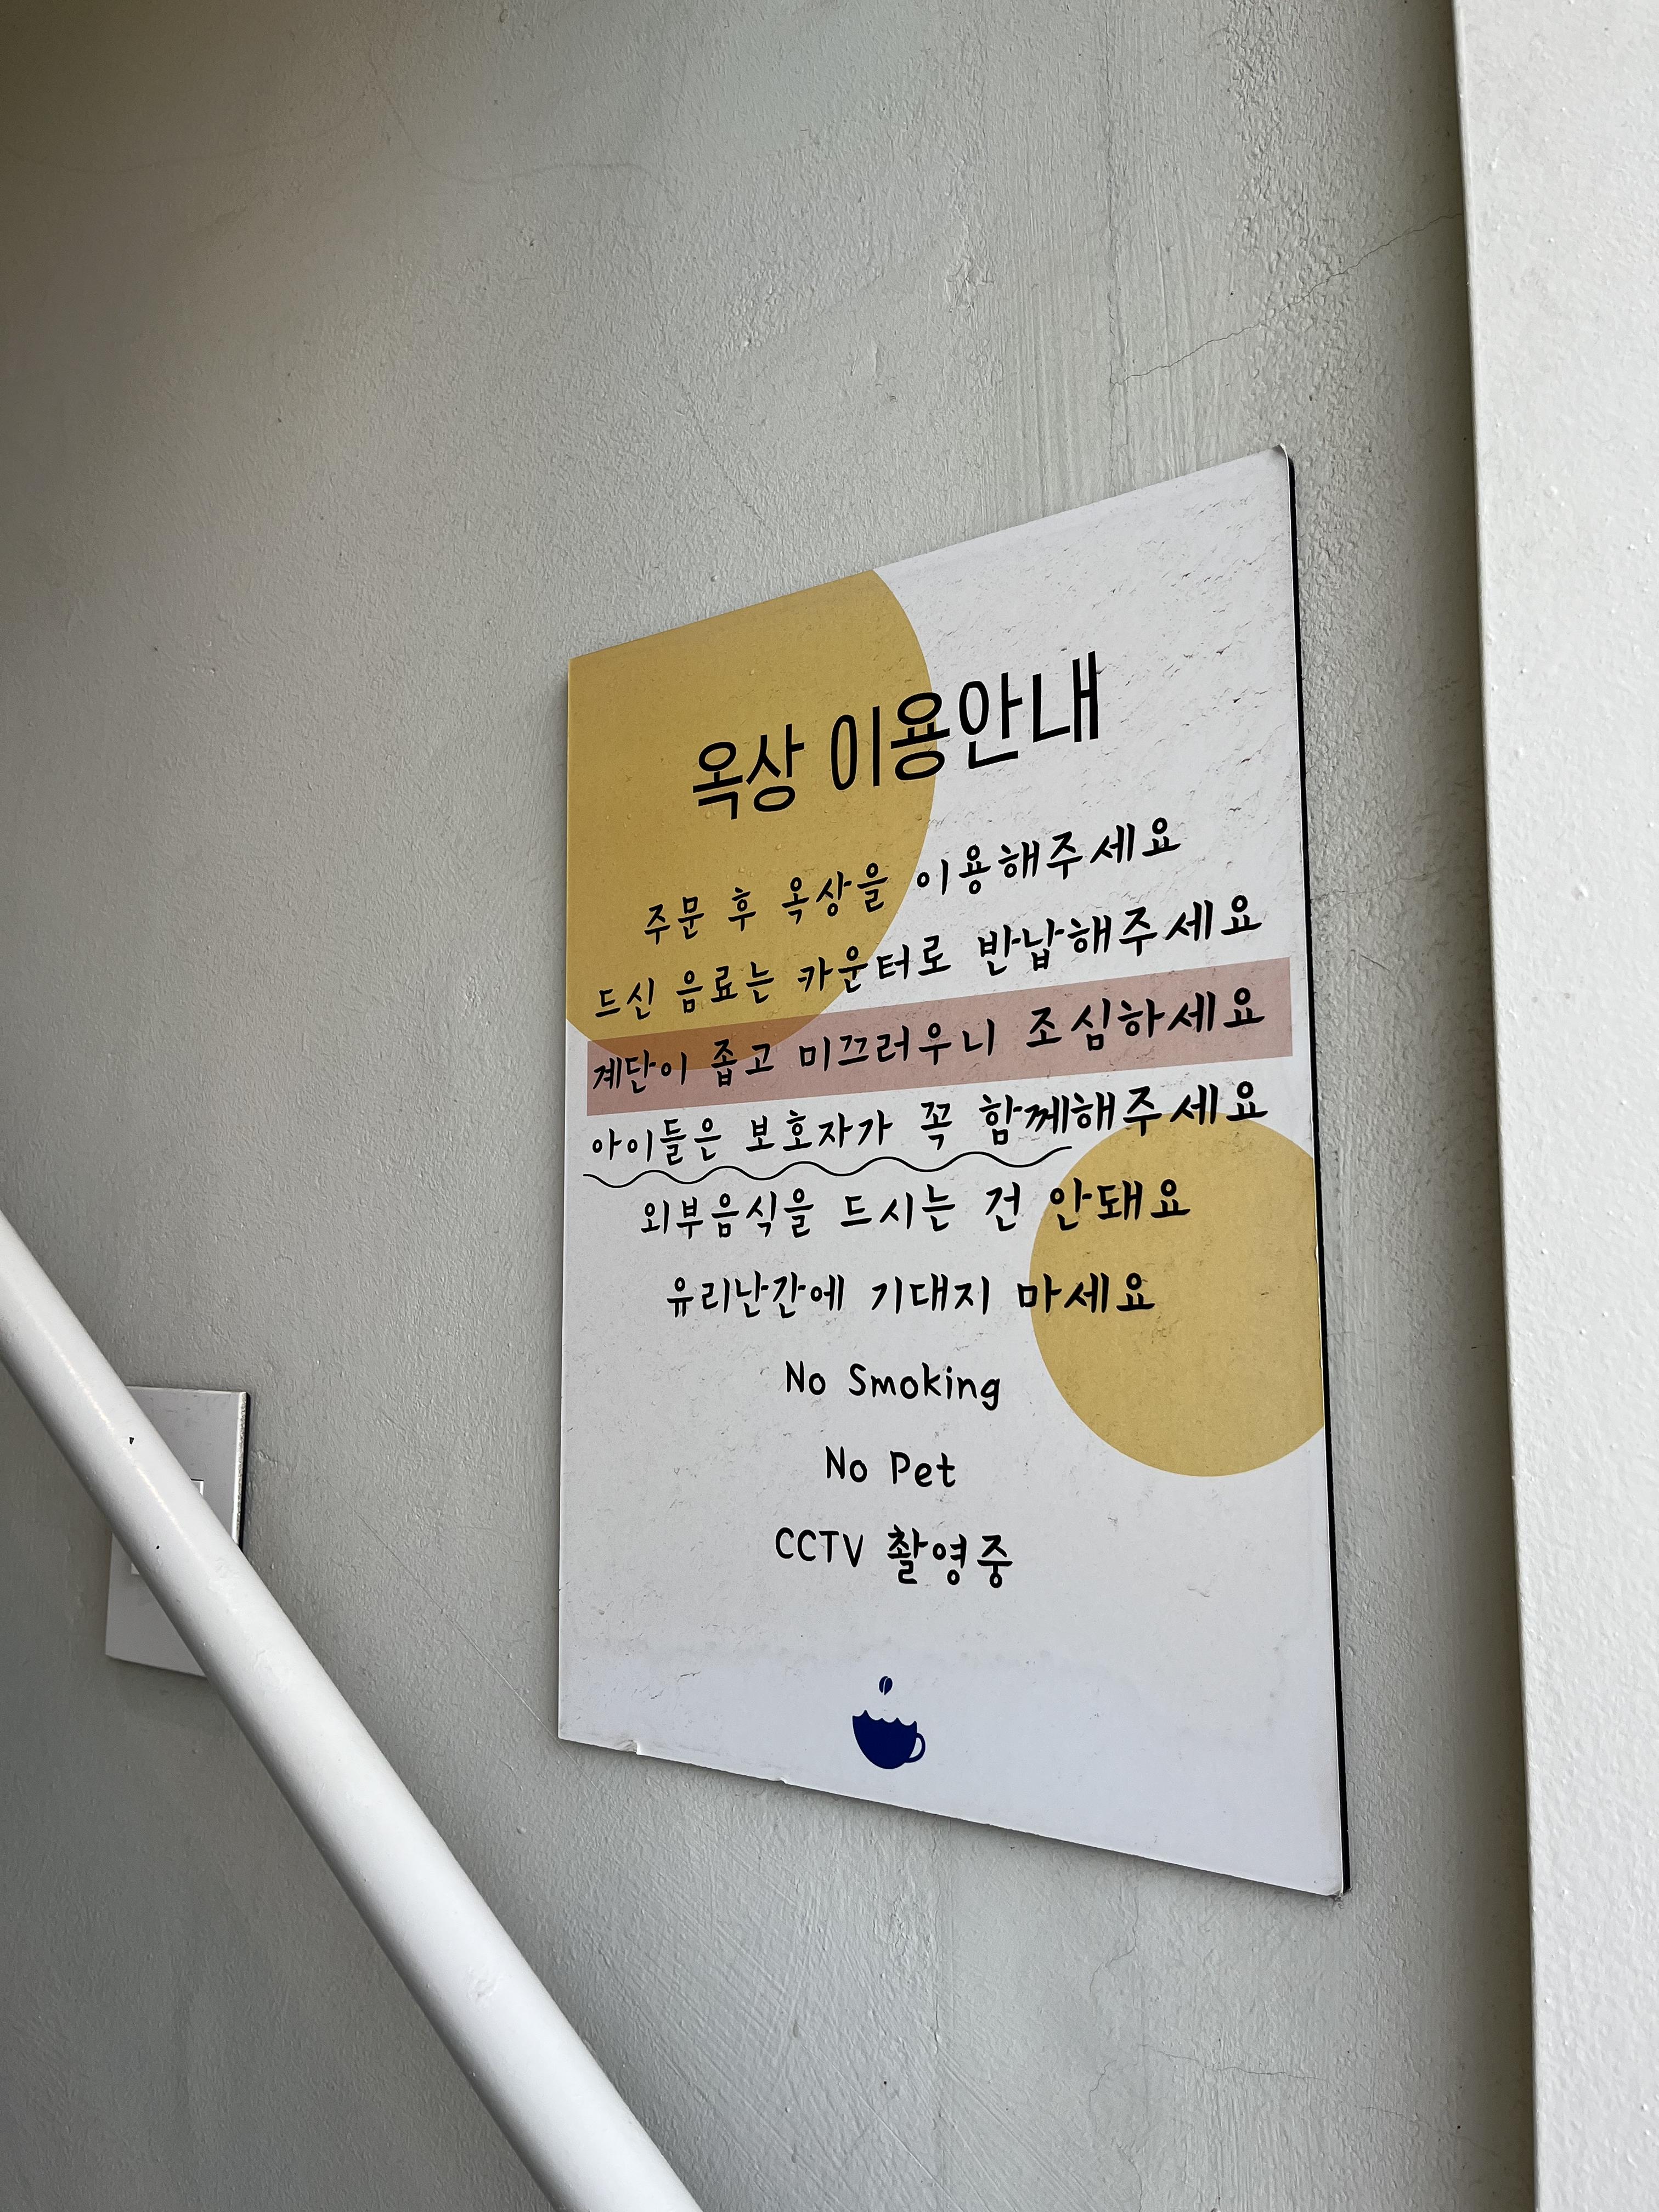 옥상 이용안내
주문 후 옥상을 이용해주세요
드신 음료는 카운터로 반납해주세요
계단이 좁고 미끄러우니 조심하세요
아이들은 보호자가 꼭 함께해주세요
외부음식을 드시는 건 안돼요
유리난간에 기대지 마세요
No Smoking
No Pet
CCTV 촬영중